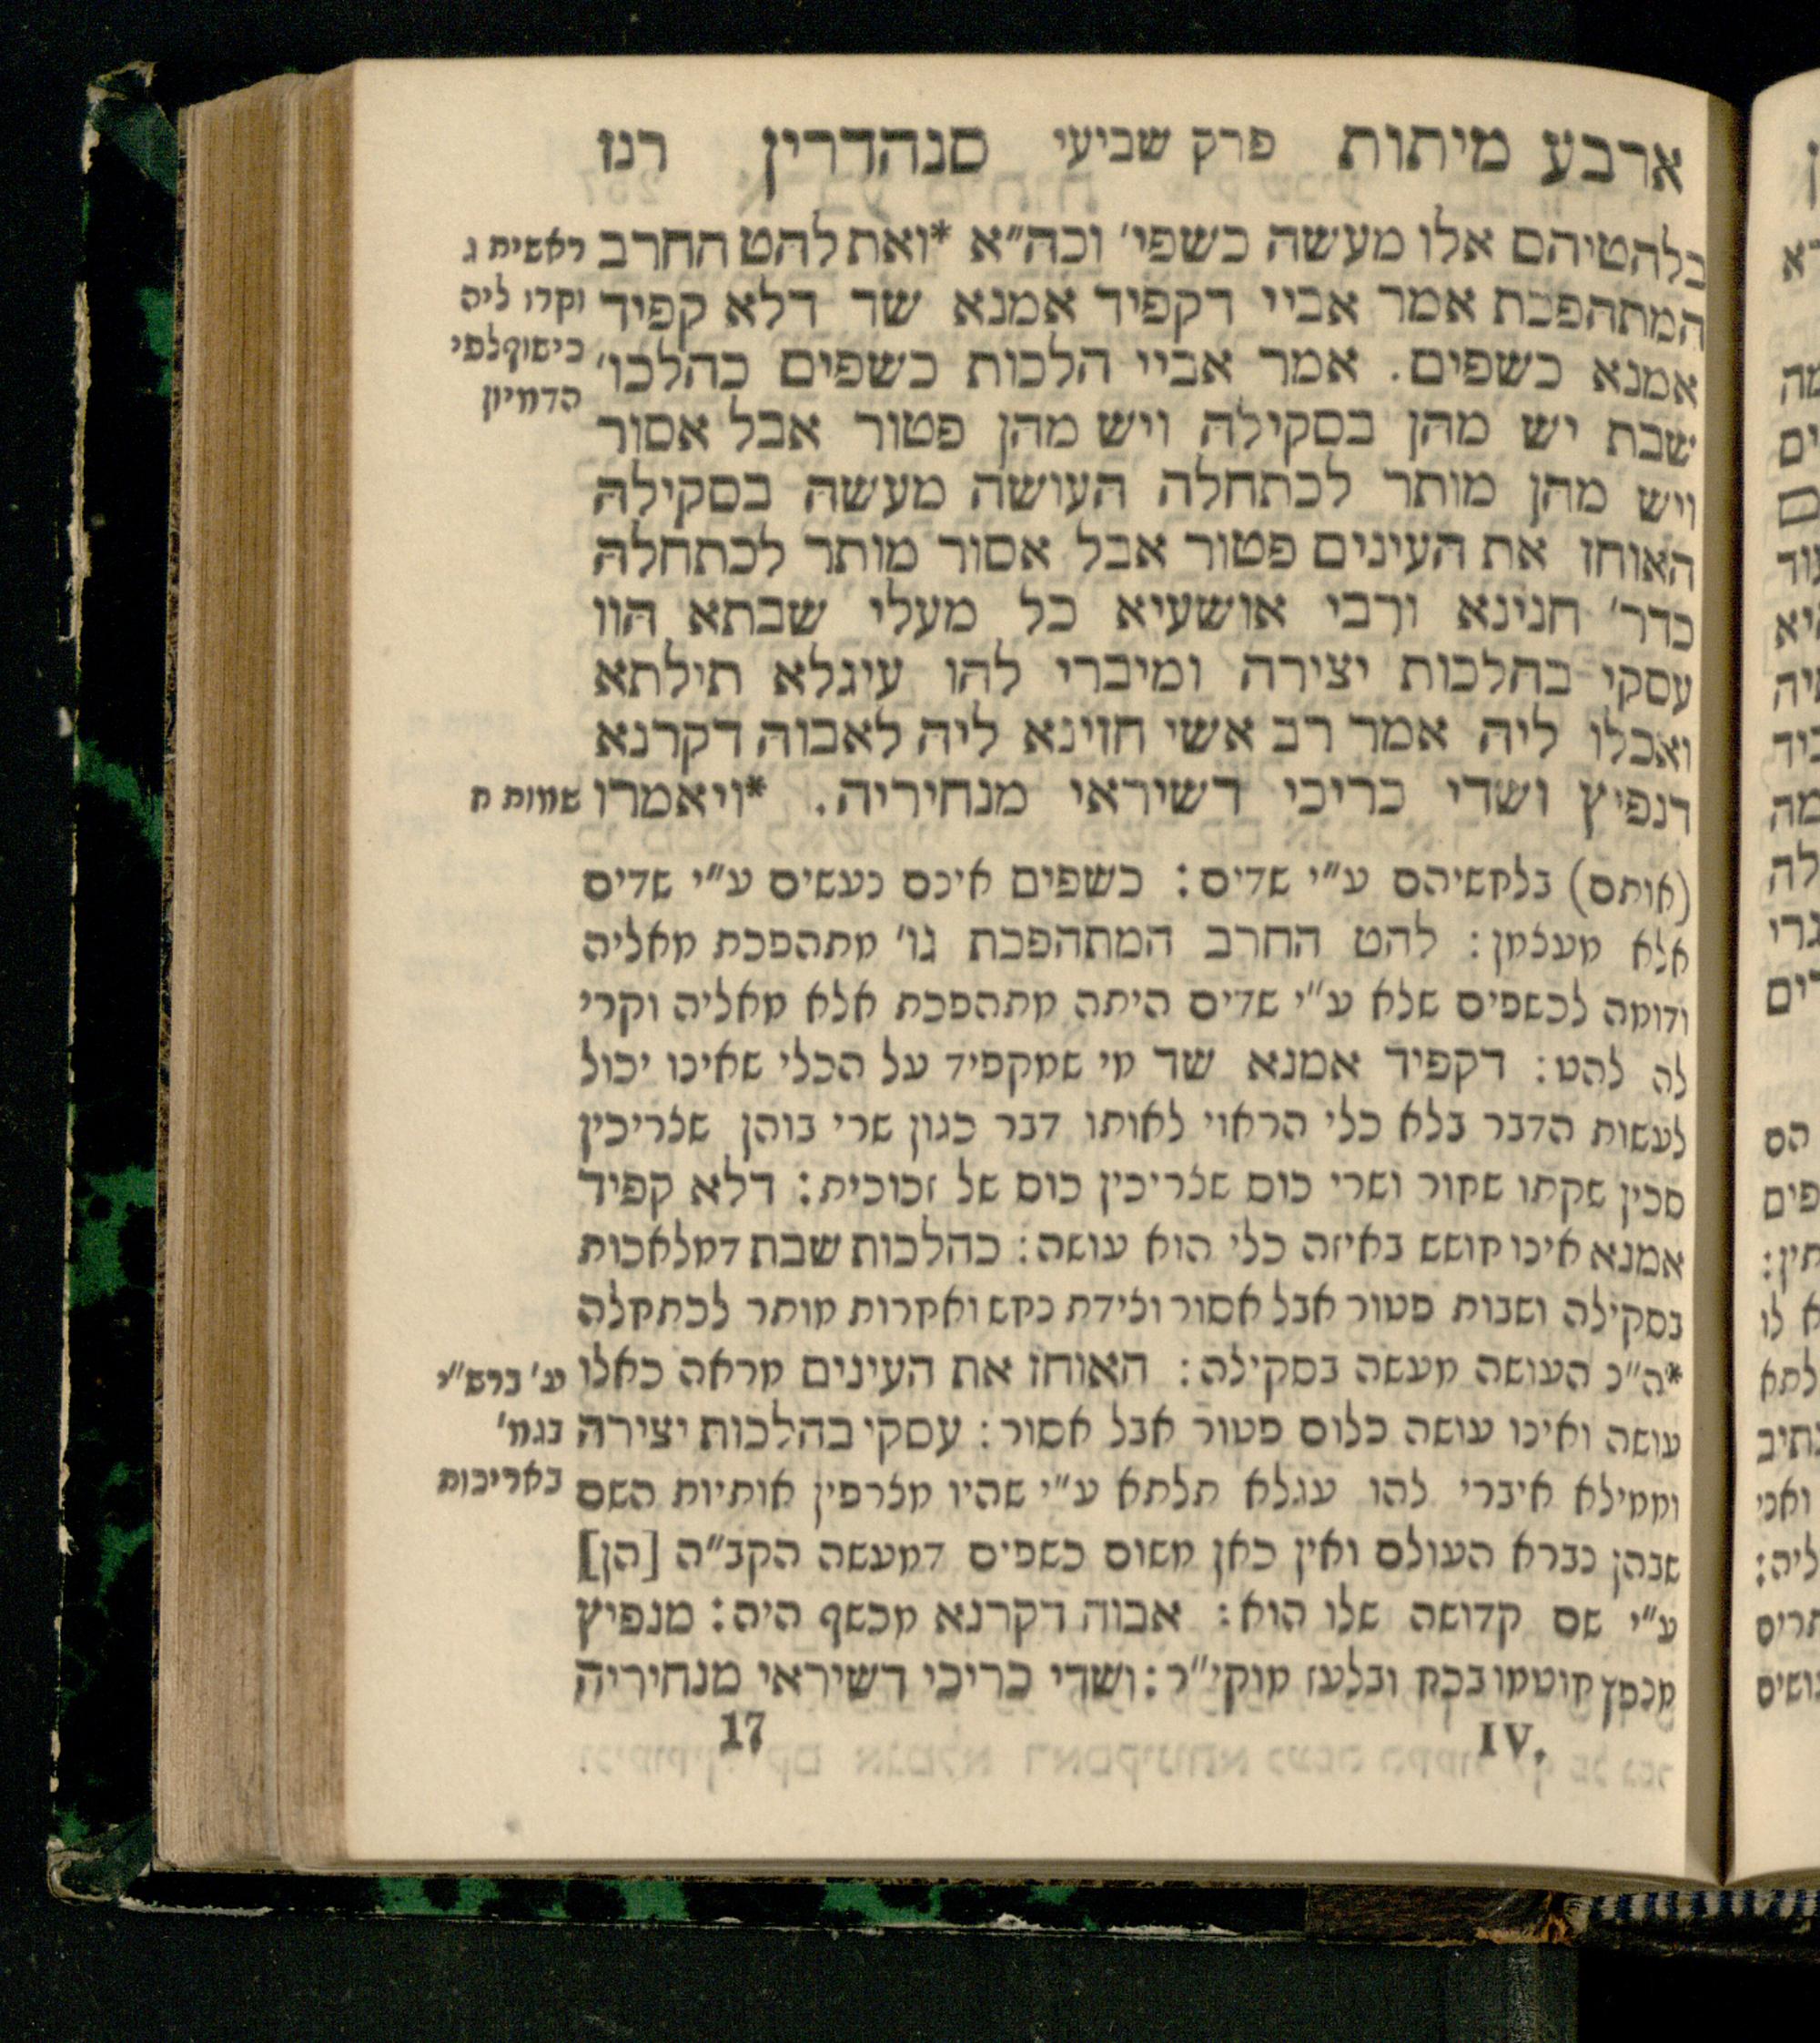 ארבע מיתות פרק שביעי סנהדרין רנז
בלהטיהם אלו מעשה כשפי׳ וכה״א *ואת להט החרב
המתהפכת אמר אביי דקפיד אמנא שד דלא קפיד
אמנא כשפים. אמר אביי הלכות כשפים כהלכו׳
שבת יש מהן בסקילה ויש מהן פטור אבל אסור
ויש מהן מותר לכתחלה העושה מעשה בסקילה
האוחז את העינים פטור אבל אסור מותר לכתחלה
כדר׳ חנינא ורבי אושעיא כל מעלי שבתא הוו
עסקי בהלכות יצירה ומיברי להו עיגלא תילתא
ואכלו ליה אמר רב אשי חזינא ליה לאבוה דקרנא
דנפיץ ושדי כריכי דשיראי מנחיריה. *ויאמרו
בראשית ג
וקרו ליה
כישוף לפי
הדמיון
שמות ח
(אותם) בלחשיהם ע״י שדים: כשפים אינם נעשים ע״י שדים
אלא מעצמן: להט החרב המתהפכת גו׳ מתהפכת מאליה
ודומה לכשפים שלא ע״י שדים היתה מתהפכת אלא מאליה וקרי
לה להט: דקפיד אמנא שד מי שמקפיד על הכלי שאינו יכול
לעשות הדבר בלא כלי הראוי לאותו דבר כגון שרי בוהן שצריכין
סכין שקתו שחור ושרי כוס שצריכין כוס של זכוכית: דלא קפיד
אמנא אינו חושש באיזה כלי הוא עושה: כהלכות שבת דמלאכות
בסקילה ושבות פטור אבל אסור וצידת נחש ואחרות מותר לכתחלה
*ה״נ העושה מעשה בסקילה: האוחז את העינים מראה כאלו
עושה ואינו עושה כלום פטור אבל אסור: עסקי בהלכות יצירה
וממילא איברי להו עגלא תלתא ע״י שהיו מצרפין אותיות השם
שבהן נברא העולם ואין כאן משום כשפים דמעשה הקב״ה [הן]
ע״י שם קדושה שלו הוא: אבוה דקרנא מכשף היה: מנפיץ
מנפץ חוטמו בכח ובלעז מוקי״ר: ושדי כריכי דשיראי מנחיריה
עי׳ ברש״י
בגמ׳
באריכות
IV. 17